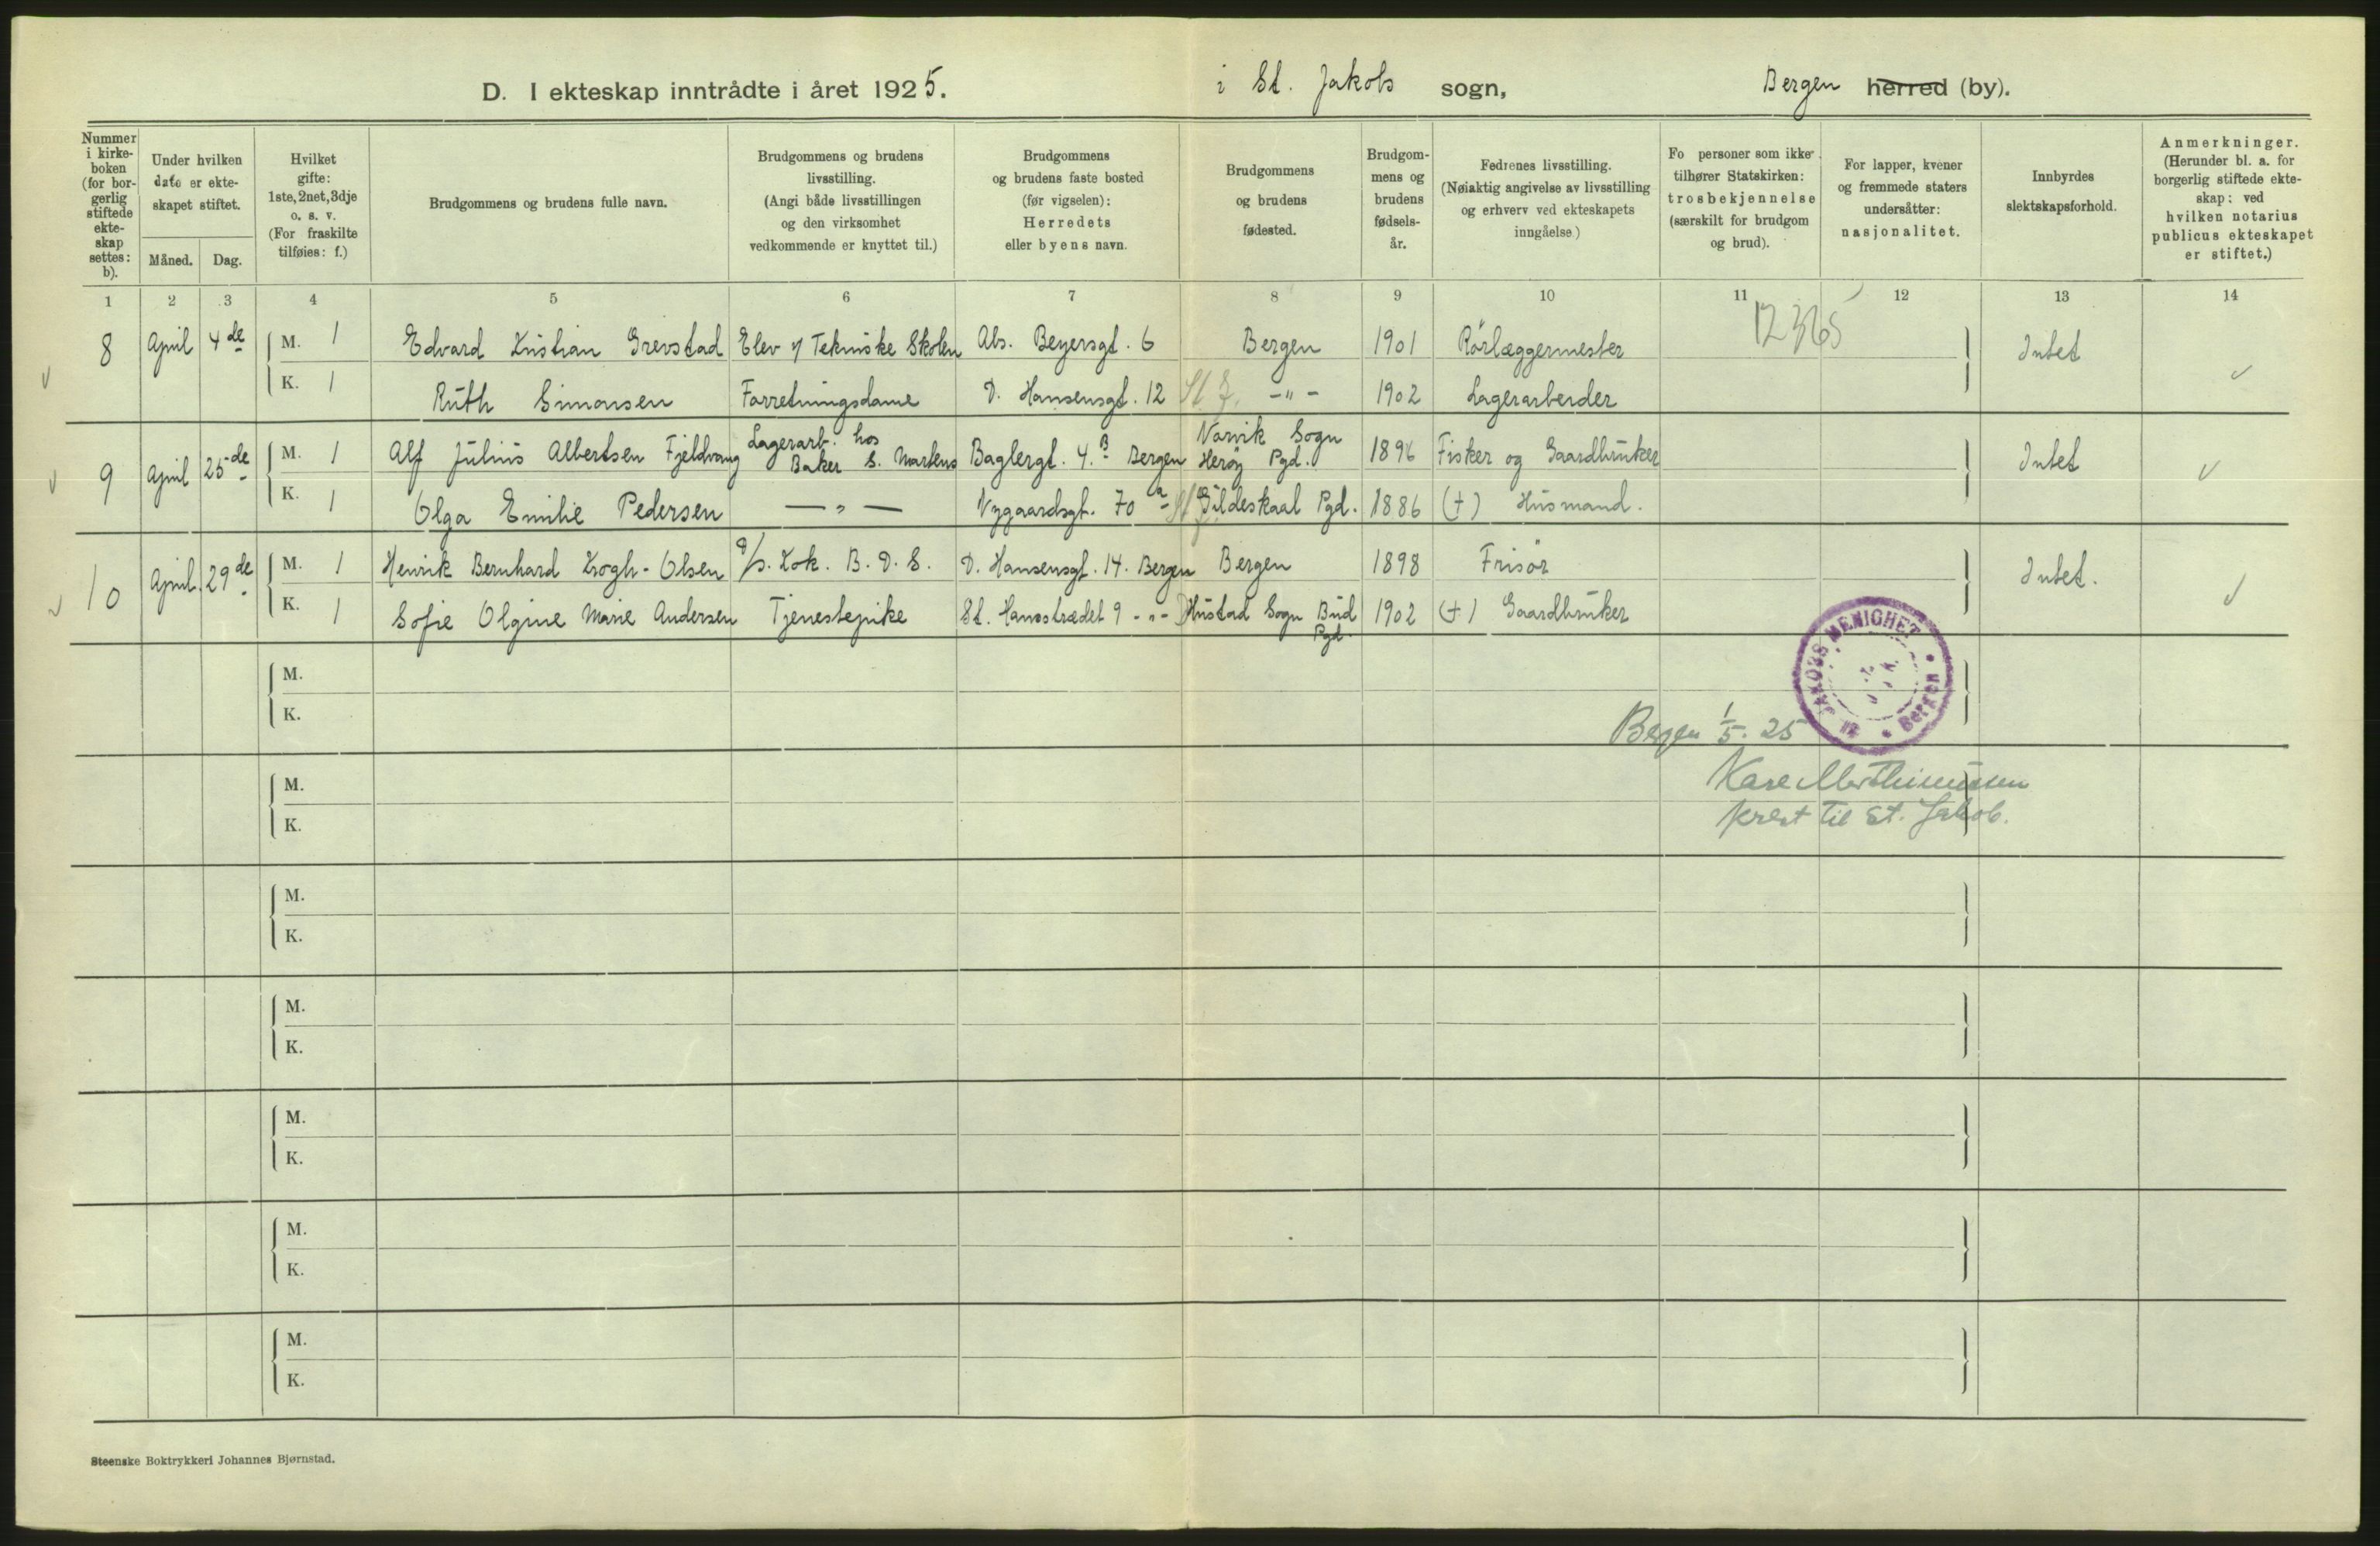 D. I ekteskap inntrådte i året 1925. i St. Jakobs sogn, Bergen herred (by).
Nummer i kirkeboken (for borgerlig stiftede ekteskap settes: b).
Under hvilken dato er ekteskapet stiftet.
Måned. Dag.
Hvilket gifte: 1ste, 2net, 3dje o. s. v. (For fraskilte tilføies: f.)
Brudgommens og brudens fulle navn.
Brudgommens og brudens livsstilling. (Angi både livsstillingen og den virksomhet vedkommende er knyttet til.)
Brudgommens og brudens faste bosted (før vigselen): Herredets eller byens navn.
Brudgommens og brudens fødested.
Brudgommens og brudens fødselsår.
Fedrenes livsstilling. (Nøiaktig angivelse av livsstilling og erhverv ved ekteskapets inngåelse.)
Fo personer som ikke tilhører Statskirken: trosbekjennelse (særskilt for brudgom og brud).
For lapper, kvener og fremmede staters undersåtter: nasjonalitet.
Innbyrdes slektskapsforhold.
Anmerkninger. (Herunder bl. a. for borgerlig stiftede ekteskap: ved hvilken notarius publicus ekteskapet er stiftet.)
1 2 3 4 5 6 7 8 9 10 11 12 13 14
12365
8 April 4de M. 1 Edvard Kristian Grevstad Elev v/ Tekniske Skolen Abs. Beyersgt. 6 Bergen 1901 Rörlæggermester Intet
K. 1 Ruth Simonsen Forretningsdame D. Hansensgt. 12 St. J. -"- 1902 Lagerarbeider
9 April 25de M. 1 Alf Julius Albertsen Fjeldvang Lagerarb. hos Baker S. Martens Baglergt. 4.B Bergen Norvik Sogn Herøy Pgd. 1896 Fisker og Gaardbruker Intet
K. 1 Olga Emilie Pedersen — " — Nygaardsgt. 70 a St. J. Gildeskaal Pgd. 1886 (+) Husmand.
10 April 29de M. 1 Henrik Bernhard Krogh-Olsen D/S. Kok. B. D. S. D. Hansensgt. 14. Bergen Bergen 1898 Frisör Intet.
K. 1 Sofie Olgine Marie Andersen Tjenestepike St. Hansstrædet 9 -"- Hustad Sogn Bud Pgd. 1902 (+) Gaardbruker
ST. JAKOBS MENIGHET
Bergen
M.
K.
Bergen 1/5. 25
M.
Kare Marthinussen
prest til St. Jakob.
K.
M.
K.
M.
K.
M.
K.
M.
K.
M.
K.
Steenske Boktrykkeri Johannes Bjørnstad.